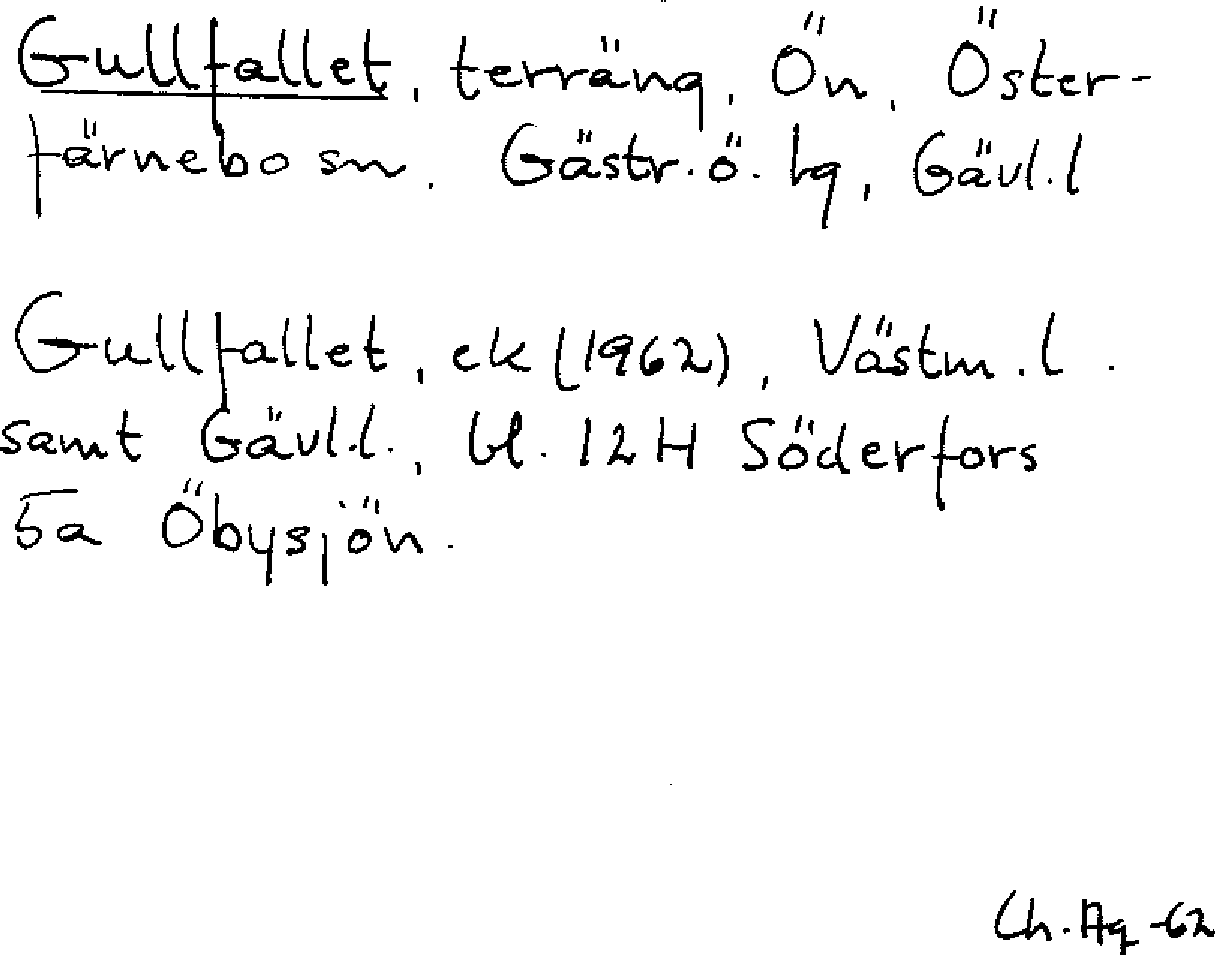 Gullfallet, terräng, Ön, Öster-
färnebo sn. Gästr. ö. tg, Gävl.l
Gullfallet, ek (1962), Västm.l.
samt Gävl.l., bl. 12H Söderfors
5a Öbysjön.
Ch. Ag -62